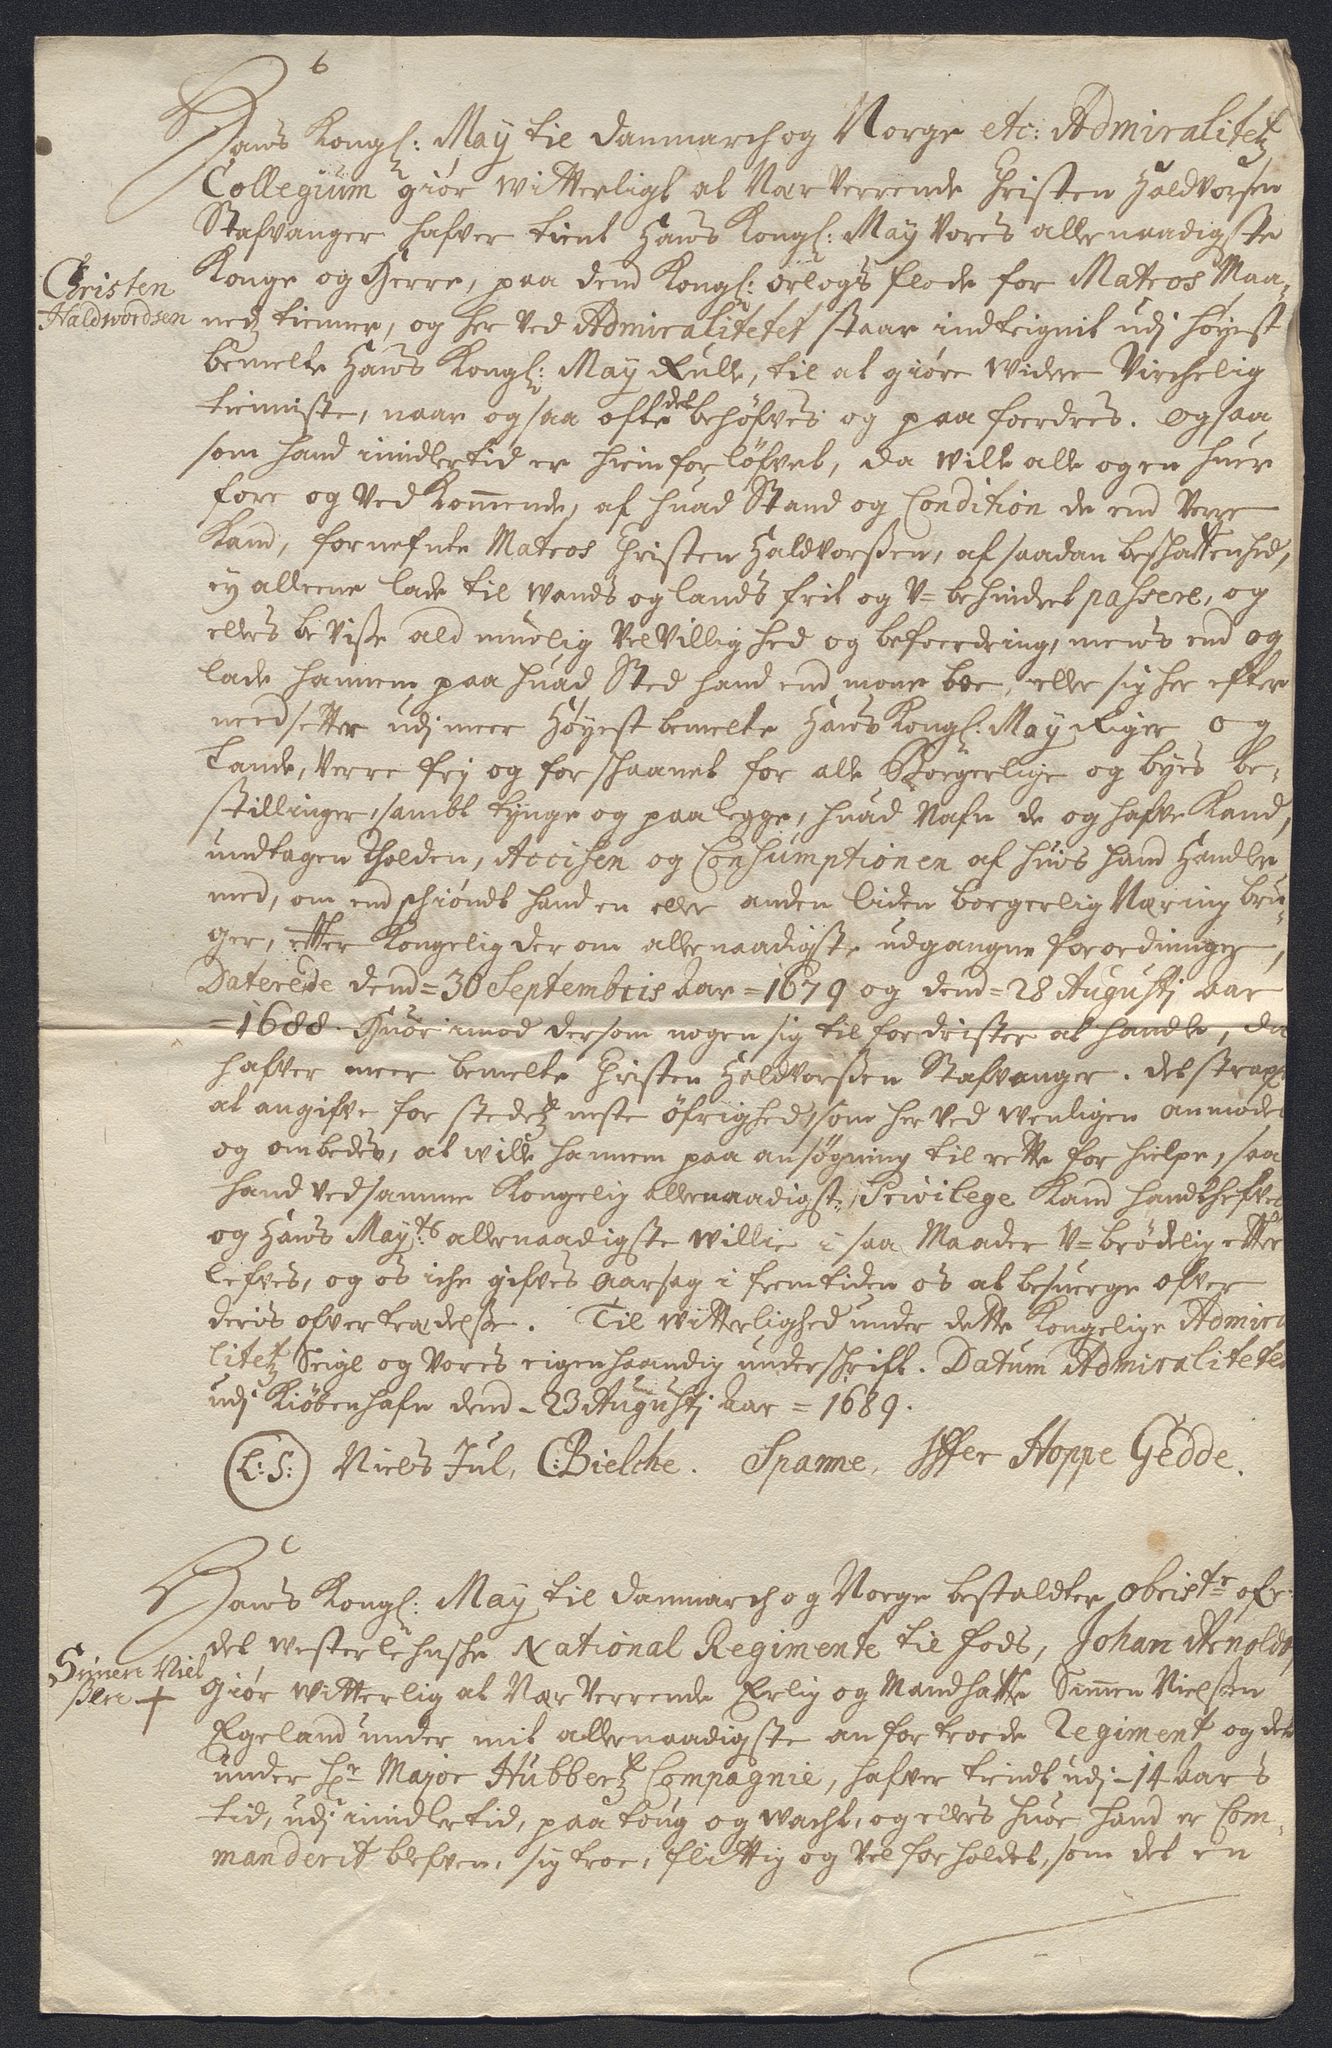 Hans Kongl: May til Danmarch og Norge etc: Admiralitetz
Collegium giör witterligt at Nærverrende Christen Haldvorsen
Stafvanger hafver tient Hans Kongl: May vores allernaadigste
Konge og Herre, paa dend Kongl: orlogs flode for Matros Maa-
Christen
Haldwordsen
netz tienner, og her ved Admiralitetet staar indteignit udj höyest
bemelte Hans Kongl: May Rulle, til at giöre widere Virchelig
tienniste, naar og saa ofte det behöfves og paa fordres. og saa
som hand imidlertid er hiemforlöfvet, da wille alle og en huer
fore og ved Kommende, af huad Stand og Condition de end verre
Kand, fornefnte Matros Christen Haldvorßen, af saadan beshaffenhed,
ey alleene lade til wands og lands frit og V=behindret passere, og
ellers beviße ald muelig Velvillighed og befordring, mens end og
lade hannem paa huad Sted hand end mone boe, eller sig her effter
needsetter udj meer Höyest bemelte Hans Kongl: May Riger og
Lande, verre frj og forskaanet for alle Borgerlige og byes be-
stillinger, sambt tynge og paalegge, huad Nafn de og hafve Kand,
undtagen Tholden, Accisen og Consumptionen af huis hand Handler
med, om end schiöndt hand en eller anden liden borgerlig Næring bru-
ger, etter Kongelig der om allernaadigste udgangne forordninger,
Daterede dend = 30 Septembris Aar = 1679 og dend = 28 Augustj Aar
= 1688. Huor imod dersom nogen sig tilfordrister at handle, da
hafver meer bemelte Christen Haldvorßen Stafvanger. det strax
at angifve for stedetz neste öfrighed, som her ved wenligen anmodes
og ombedes, at wille hannem paa ansögning til rette for hielpe, saa
hand ved samme Kongelig allernaadigste Privilege Kand handthefves
og Hans Mayts allernaadigste willie i saa Maader V=brödelig etter
lefves, og os iche gifves Aarsag i fremtiden os at besuerge ofver
deris ofvertrædelße. Til witterlighed under dette Kongelige Admira
litetz Seigl og Vores eigenhaandig underschrift. Datum Admiralitetet
udj Kiöbenhafn dend - 23 Augustj Aar = 1689.
L:S: Niels Jul, C:Bielche. Spanne, Iffer Hoppe Gedde.
Hans Kongl: May til Danmarch og Norge bestaldter obriste ofr:
det westerlehnsche National Regimente til fods, Johan Arnoldt,
Simen Niel
ßen +
giör witterlig at Nærverrende Erlig og Mandhaffte Simen Nielßen
Egeland under mit allernaadigste anfortroede Regiment og det
under Hr Major Hübbertz Compagnie, hafver tiendt udj - 14 Aars
tid, udj imidlertid, paa toug og wacht, og ellers huor hand er Com-
manderit blefven, sig troe, flittig og vel forholdet, som det en